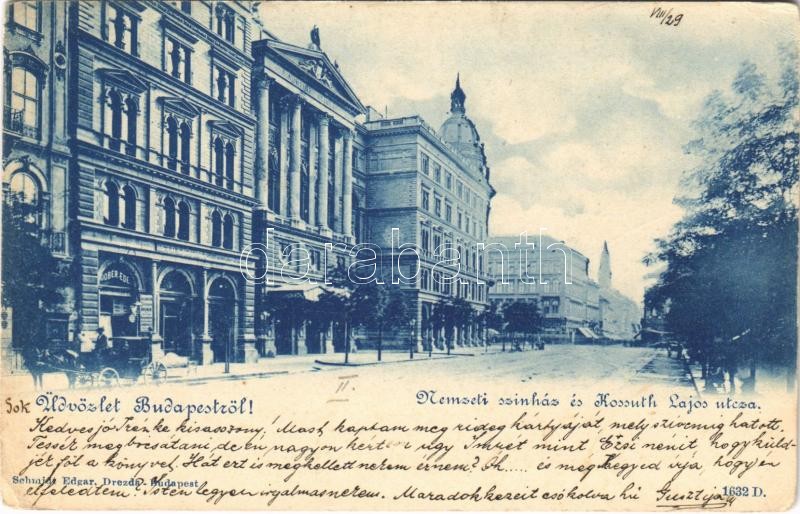 VIII/29
ÓBER EDE
darabanth.com
II.
Sok Üdvözlet Budapestről!
Nemzeti szinház és Kossuth Lajos utcza.
Kedves jó Irenke kisasszony! Most kaptam meg rideg kártyáját, mely szivemig hatott.
Tessék megbocsátani de én nagyon kértem úgy Imrét mint Erzsi nénit, hogy küld-
jék föl a könyvet. Hát ezt is meg kellett nekem érnem? Oh..... és még kegyed írja, hogy én
elfeledtem? Isten legyen irgalmas nekem. Maradok kezeit csókolva hű Gusztija
Schmidt Edgar, Drezda-Budapest
1632 D.